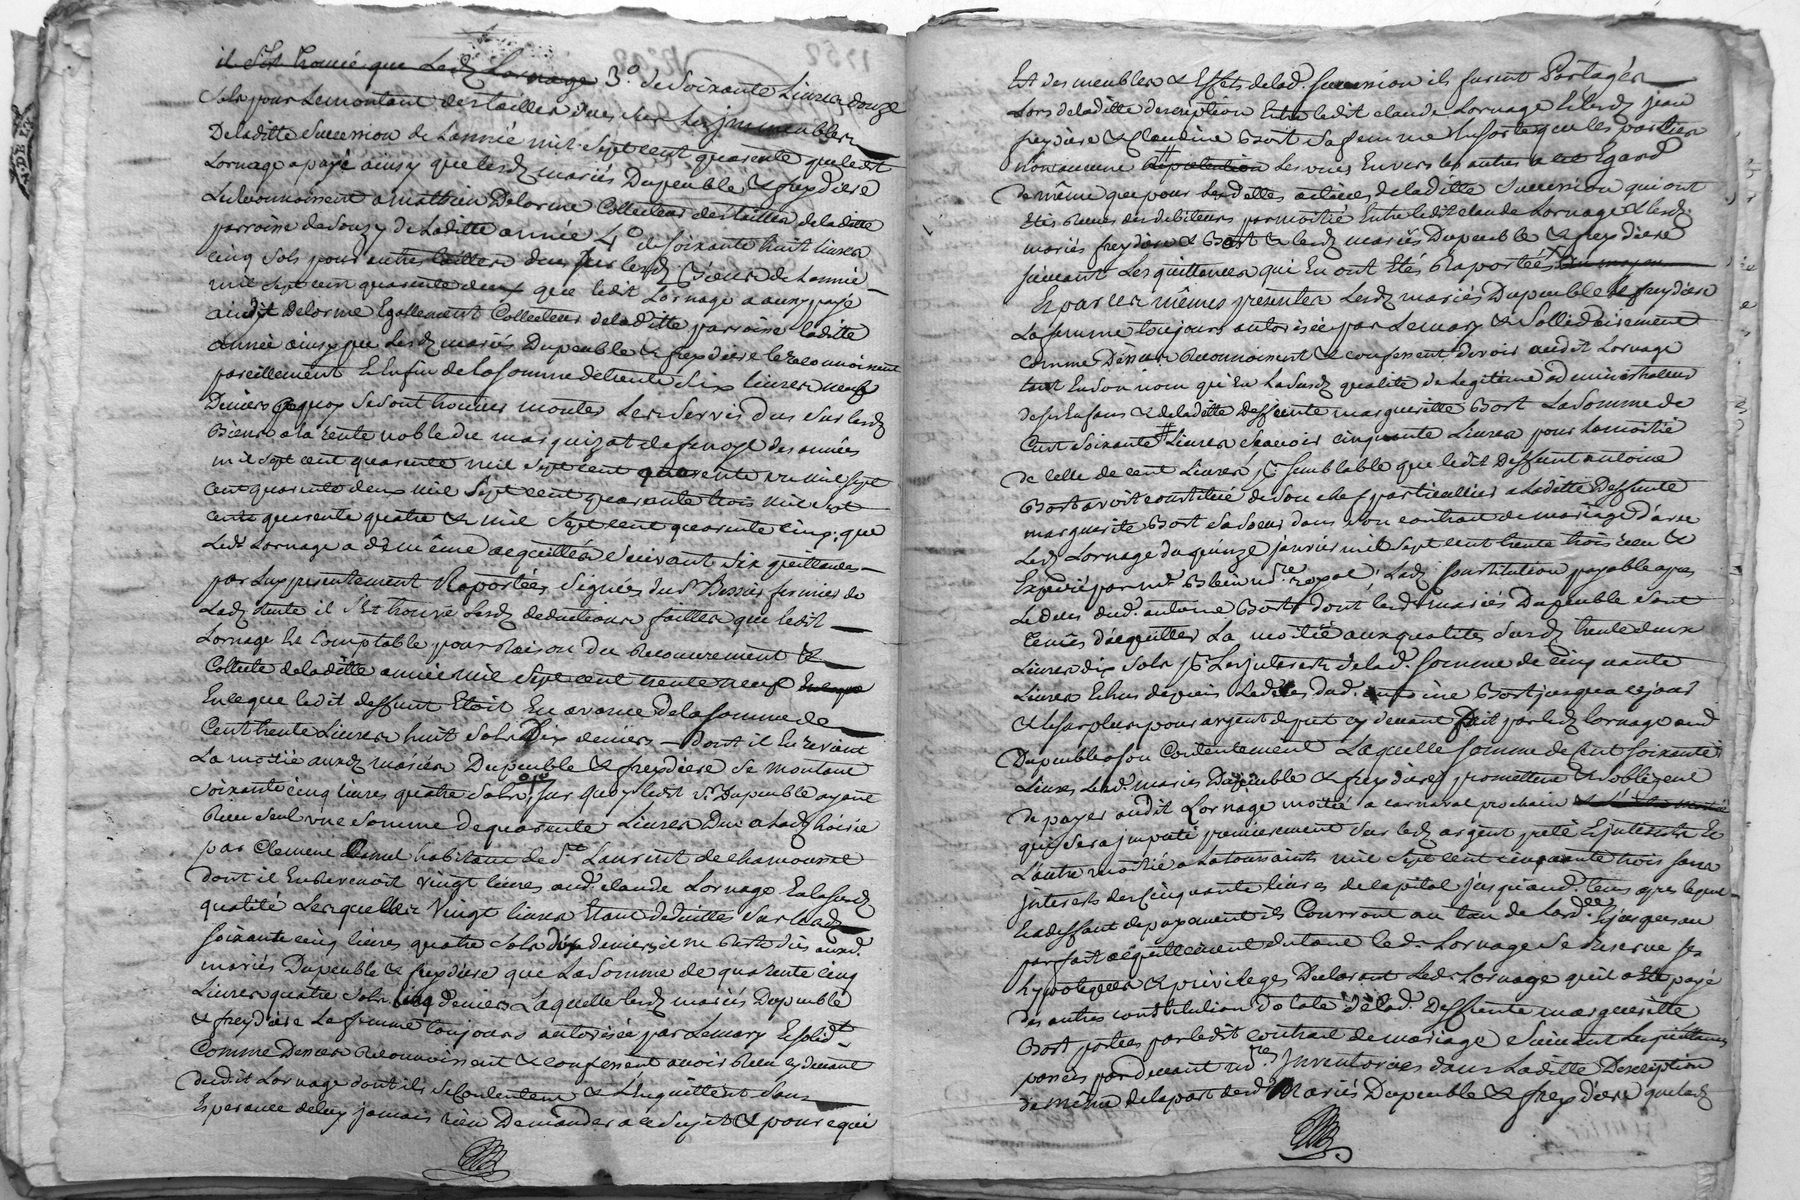 il s'est trouvé que Ledz Lornage 3.º de Soixante Livres douze
Sols pour Le montant des tailles dues sur Les jmmeubles
De laditte Succession de Lannée mil Sept cent quarente que ledt
Lornage a payé ainsy que lesdz mariés Dupeuble & freydiere
Le reconnoissent a mathieu Delorme Collecteur des tailles de laditte
parroisse de Souzy de Laditte année 4.º de Soixante huit Livres
cinq Sols pour autres tailles dues sur lesdz Biens de Lannée
mil Sept cent quarente deux que ledit Lornage a aussy payé
audit Delorme Egallement Collecteur de laditte parroisse laditte
année ainsy que Lesdz mariés Dupeuble & freydiere le reconnoissent
pareillement Et Enfin de La Somme de trente Six Livres neuf
Deniers a quoy Se Sont trouvés montés Les Servis dus Sur lesdz
Biens a la rente noble du marquizat de des années
mil Sept cent quarente mil Sept cent quarente un mil Sept
cent quarente deux mil Sept cent quarente trois mil Sept
cent quarente quatre & mil Sept cent quarente Cinq, que
Ledt Lornage a de même acquittés Suivant Six quittances
par Luy presentement Raportées Signées du Sr fermier de
Ladz rente il S'est trouvé Lesdz deductions faittes que ledit
Lornage Est Comptable pour Raison du Recouvrement &
Collecte de laditte année mil Sept cent trente neuf
En ce que ledit deffunt Etoit En avance de la Somme de
Cent trente Livres huit Sols Dix deniers dont il En revient
La moitié auxdz mariés Dupeuble & freydiere Se montant
Soixante cinq Livres quatre Sols, Sur quoy ledit Sr Dupeuble ayant
Receu Seul une Somme de quarente Livres Due a Ladz hoirie
par Clement habitant de St Laurent de chamousset
dont il En Revenoit vingt livres aud. claude Lornage En la Susdz
qualité Lesquelles Vingt livres Etant deduittes Sur Lesdz
Soixante cinq livres quatre Sols deniers il ne Reste dus auxd.
mariés Dupeuble & freydiere que La Somme de quarente cinq
Livres quatre Sols cinq deniers Laquelle lesdz mariés Dupeuble
& freydiere La femme toujours autorisée par Le mary & Solidt
Comme Dessus Reconnoissent & confessent avoir Receu cy devant
dudit Lornage dont ils Se Contentent & L'en quittent Sans
Esperance de luy jamais rien Demander a ce Sujet & pour ce qui
Est des meubles & Effets de lad. Succession ils furent Partagés
Lors de laditte description Entre ledit claude Lornage & Lesdz jean
freydiere & Claudine Bost Sa femme En Sorte que les parties
n'ont aucune Repetition Les unes Envers les autres a cet Egard
de même que pour Lesdettes actives de laditte Succession qui ont
Etés Receues des debiteurs par moitié Entre ledit claude Lornage & lesdz
mariés freydiere & Bost & lesdz mariés Dupeuble & freydiere
Suivant Les quittances qui En ont Etés Raportées
Et par ces mêmes presentes Lesdz mariés Dupeuble & freydiere
La femme toujours autorisée par Le mary & Sollidairement
Comme Dessus Reconnoissent & confessent devoir audit Lornage
tant En Son nom qu'En La Susdz qualité de Legitime administrateur
de Ses Enfans & de laditte Deffunte marguerite Bost La Somme de
Cent Soixante Livres Scavoir cinquante Livres pour La moitié
de Celle de cent Livres Semblable que ledit Deffunt antoine
Bost avoit constitué de Son chef particullier a laditte Deffunte
marguerite Bost Sa Soeur dans Son contrat de mariage d'avec
Ledz Lornage du quinze janvier mil Sept cent trente trois receu &
Expedié par me Blein nre royal, Ladz Constitution payable apres
Le deces dud. antoine Bost dont lesdz mariés Dupeuble Sont
tenus d'acquitter La moitié aux qualités Susdz trente deux
Livres dix Sols pr Les jnterests de lad. Somme de cinquante
Livres Echus depuis Le deces dud. antoine Bost jusqu'a ce jour
& le Surplus pour argent de pret cy devant fait par ledz Lornage aud.
Dupeuble a Son Contentement Laquelle Somme de Cent Soixante
Livres Lesd. mariés Dupeuble & freydiere promettent & S'obligent
de payer audit Lornage moitié a carnaval prochain
qui Sera jmputé premierement Sur ledz argent preté & jnterests Et
L'autre moitié a La toussaints mil Sept cent cinquante trois Sans
jnterests des Cinquante livres de Capital jusqu'aud. tems apres lequel
Et a deffaut de payement ils Courront au tau de Lord.ce & jusques au
parfait acquittement du tout led. Lornage Se Reserve Ses
hypoteques & privileges Declarant Ledt Lornage qu'il a Eté payé
des autres constitution dotale de lad. Deffunte marguerite
Bost portées par ledit Contrat de mariage Suivant Les quittances
passées par devant nres jnventoriées dans Laditte Description
de même de la part desdz Mariés Dupeuble & freydiere que ledz